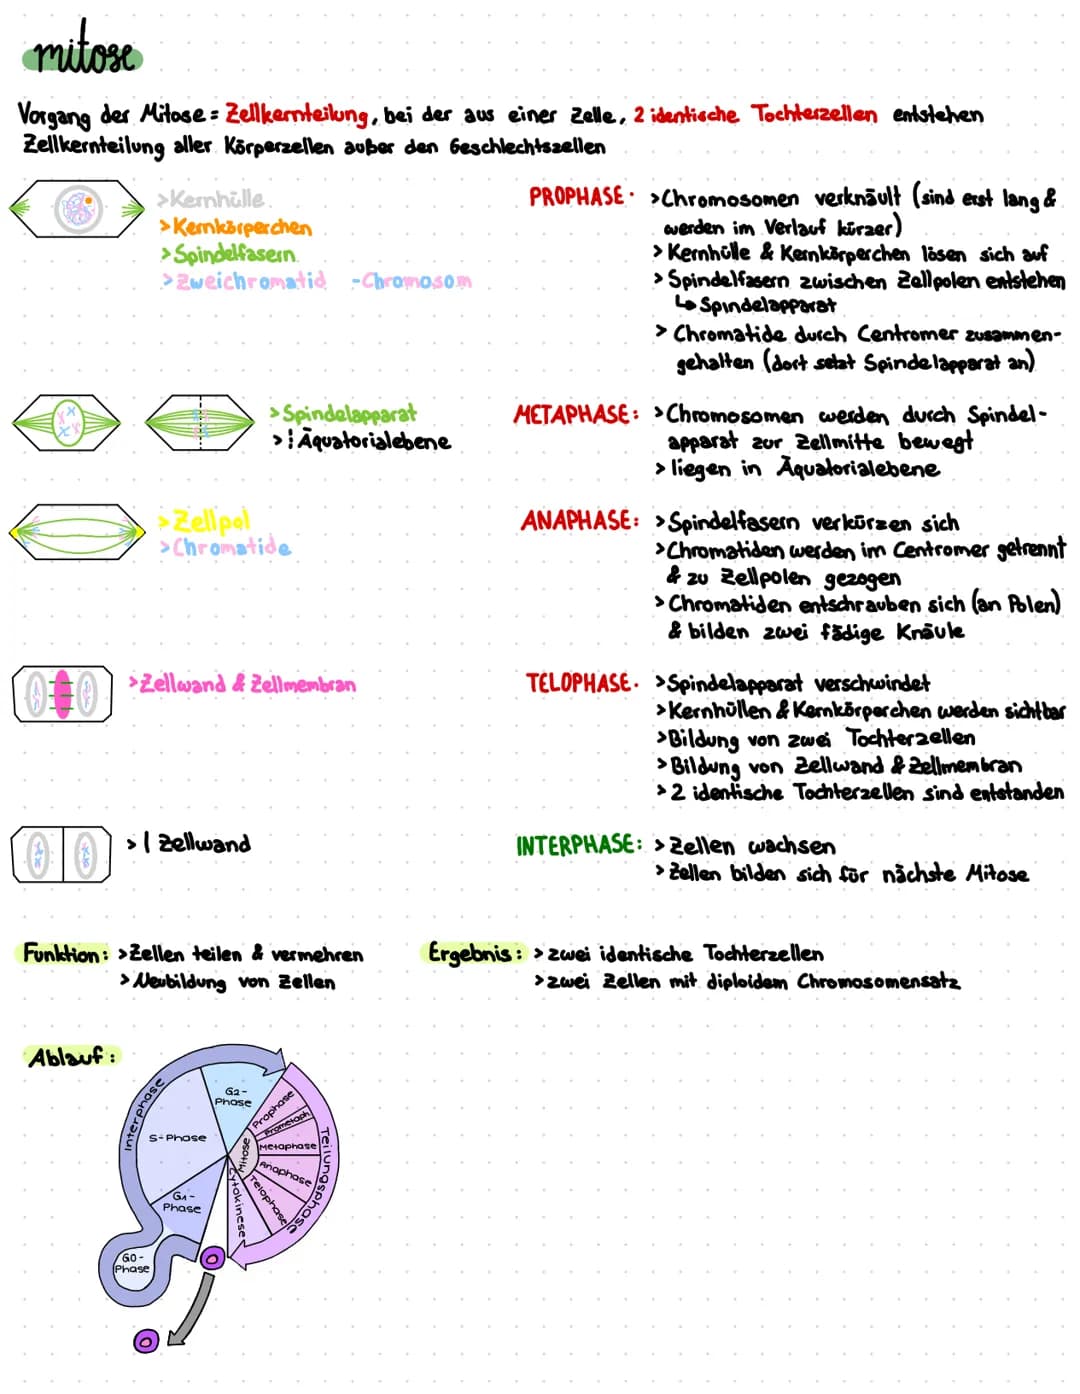 mitose
Vorgang der Mitose = Zellkernteilung, bei der aus einer Zelle, 2 identische Tochterzellen entstehen
Zellkernteilung aller Körperzellen außer den Geschlechtszellen
>Kernhülle
>Kernkörperchen
>Spindelfasern
>Zweichromatid -Chromosom
PROPHASE: >Chromosomen verknäult (sind erst lang &
werden im Verlauf kürzer)
> Kernhülle & Kernkörperchen lösen sich auf
> Spindelfasern zwischen Zellpolen entstehen
↳ Spindelapparat
> Chromatide durch Centromer zusammen-
gehalten (dort setzt Spindelapparat an)
>Spindelapparat
>¦ Äquatorialebene
METAPHASE: >Chromosomen werden durch Spindel-
apparat zur Zellmitte bewegt
> liegen in Äquatorialebene
>Zellpol
>Chromatide
ANAPHASE: >Spindelfasern verkürzen sich
>Chromatiden werden im Centromer getrennt
& zu Zellpolen gezogen
> Chromatiden entschrauben sich (an Polen)
& bilden zwei fädige Knäule
>Zellwand & Zellmembran
TELOPHASE: >Spindelapparat verschwindet
>Kernhüllen & Kernkörperchen werden sichtbar
>Bildung von zwei Tochterzellen
>Bildung von Zellwand & Zellmembran
>2 identische Tochterzellen sind entstanden
> | Zellwand
INTERPHASE: > Zellen wachsen
> Zellen bilden sich für nächste Mitose
Funktion: >Zellen teilen & vermehren
> Neubildung von Zellen
Ergebnis: > zwei identische Tochterzellen
>zwei Zellen mit diploidem Chromosomensatz
Ablauf:
Interphase
G2-
Phase
S-Phase
G1-
Phase
G0-
Phase
Mitose
Prophase
Prometaph
Metaphase
Anaphase
Telophase
Cytokinese
Teilungsphase